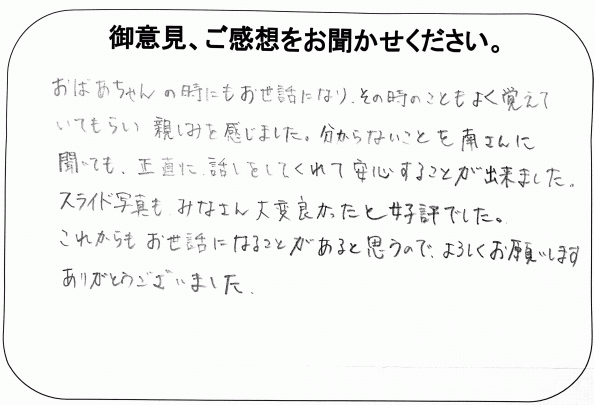 御意見、ご感想をお聞かせください。
おばあちゃんの時にもお世話になり、その時のこともよく覚えて
いてもらい 親しみを感じました。分からないことを南さんに
聞いても、正直に、話しをしてくれて安心することが出来ました。
スライド写真も みなさん大変良かったと好評でした。
これからもお世話になることがあると思うので、よろしくお願いします
ありがとうございました。